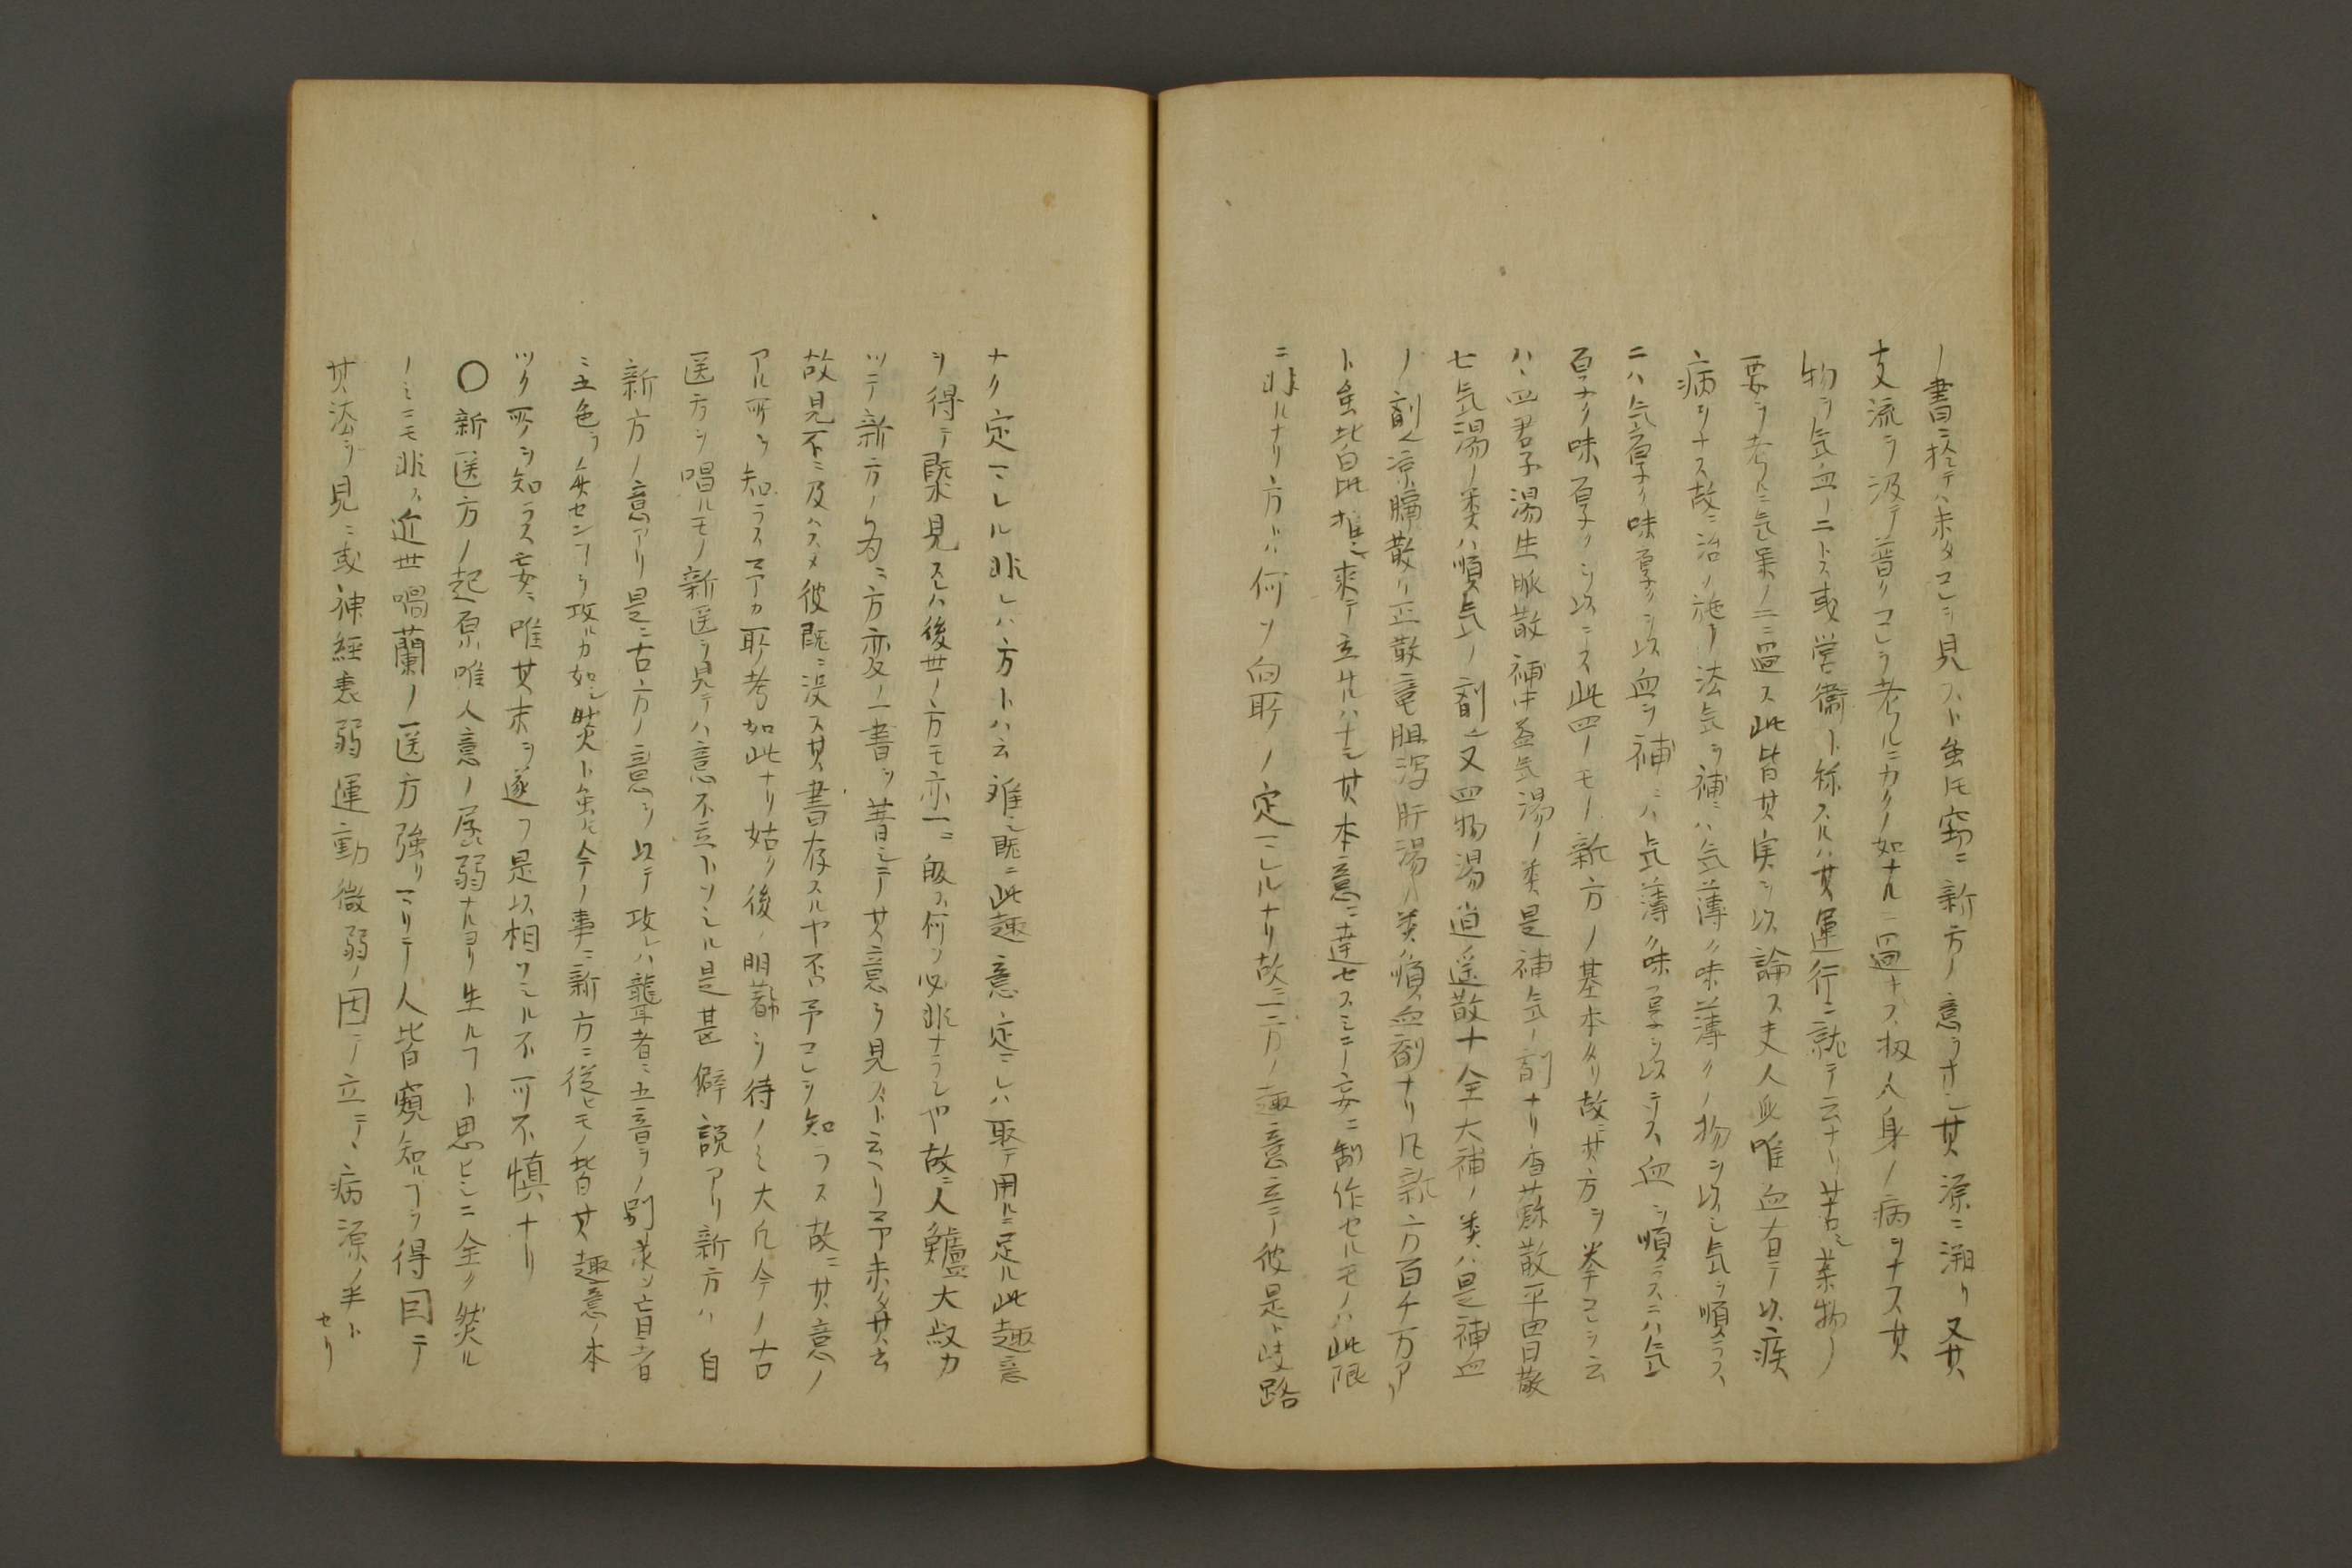 ノ書ニ於テハ未タコレヲ見スト虽𪜈窃ニ新方ノ意ヲオシ其源ニ溯リ又其
支流ヲ汲テ普クコレヲ考ルニカクノ如ナルニ過キス扨人身ノ病ヲナス其
物ヲ気血ノ二トス或営衛ト称スルハ其運行ニ就テ云ナリ若シ薬物ノ
要ヲ考ルニ気味ノ二ニ過ス此皆其実ヲ以論ス夫人此唯血有テ以疾
病ヲナス故ニ治ノ施ス法気ヲ補ニハ気薄ク味薄クノ物ヲ以シ気ヲ順ラス
ニハ気厚ク味厚クヲ以血ヲ補ニハ気薄ク味厚ヲ以ニス血ヲ順ラスニハ気
厚ク味厚クヲ以ニス此四ノモノ新方ノ基本タリ故ニ其方ヲ挙コレヲ云
ハヽ四君子湯生脈散補中益気湯ノ類是補気ノ剤ナリ香蘇散平胃散
七気湯ノ類ハ順気ノ剤也又四物湯逍遥散十全大補ノ類ハ是補血
ノ剤也凉膈散 正散竜胆瀉肝湯ノ類ノ順血剤ナリ凡新方百千万アリ
ト虽𪜈皆此 推シ来テ立サルハナシ其本意ニ達セスシテ妄ニ制作セルモノハ此限
ニ非ルナリ方トハ何ソ向所ノ定マレルナリ故ニ一方ノ趣意立テ彼是ト岐路
ナク定マレル非レハ方トハ云难シ既ニ此趣意定マレハ取テ用ルニ足ル此趣意
ヲ得テ 見スレハ後世ノ方モ亦一ニ般ス何ソ必非ナランヤ故ニ人鱸大敵カ
ツテ新方ノ為ニ方変ノ一書ヲ著シテ其意ヲ見スト云ヘリ予未タ其書ヲ
故見不ニ及ハスメ彼既ニ没ス其書存スルヤ否予コレヲ知ラス故ニ其意ノ
アル所ヲ知ラス予カ所考如此ナリ姑ク後ノ明 ヲ待ノミ大凡今ノ古
医方ヲ唱ルモノ新医ヲ見テハ意不立トソシル是甚僻説アリ新方ハ自
新方ノ意アリ是ニ古方ノ意ヲ以テ攻レハ聾者ニ五音ヲノ別 ソ盲者
ニ五色ヲノ弁センフヲ攻ルカ如シ然ト虽𪜈今ノ事ニ新方ニ従モノ皆其趣意ノ本
ツク所ヲ知ラス妄ニ唯其末ヲ逐フ是以相ソシル不可不慎ナリ
〇新医方ノ起原唯人意ノ孱弱ナルヨリ生ルフト思ヒシニ全ク然ル
ノミニモ非ス近世唱蘭ノ医方強リマリテ人皆窺知ルフヲ得因テ
其法ヲ見ニ或神経衰弱運動微弱ノ因ニテ立テヽ病源ノ半トセリ